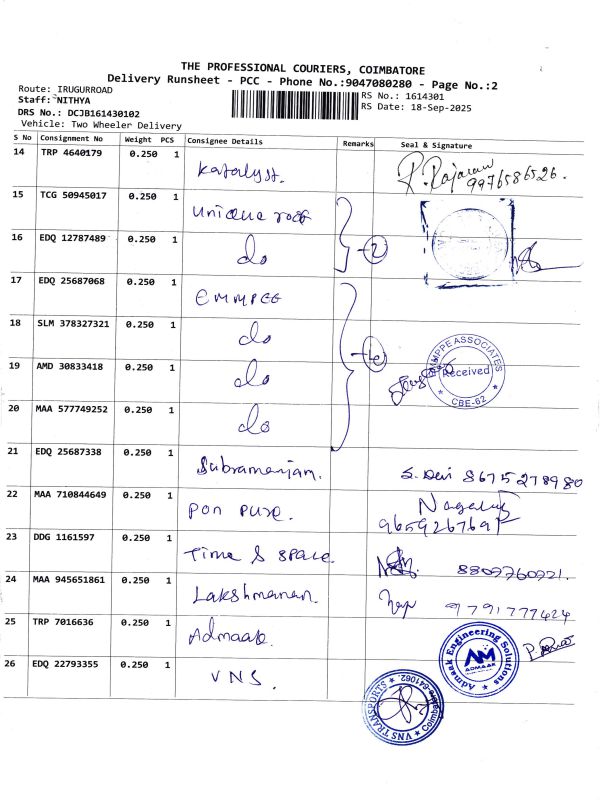 THE PROFESSIONAL COURIERS, COIMBATORE
Delivery Runsheet - PCC - Phone No.:9047080280 - Page No.:2
Route: IRUGURROAD
Staff: NITHYA
DRS No.: DCJB161430102
Vehicle: Two Wheeler Delivery
RS No.: 1614301
RS Date: 18-Sep-2025
S No Consignment No Weight PCS Consignee Details Remarks Seal & Signature
14 TRP 4640179 0.250 1 Katalyst. P. Rajaram
9976586526.
15 TCG 50945017 0.250 1 unique roof
16 EDQ 12787489 0.250 1 do 2
17 EDQ 25687068 0.250 1 EMMPEE
18 SLM 378327321 0.250 1 do
19 AMD 30833418 0.250 1 do
MPPE ASSOCIATES
Received
CBE-62
20 MAA 577749252 0.250 1 do
21 EDQ 25687338 0.250 1 Subramaniam. S. Devi 8675278980
22 MAA 710844649 0.250 1 pon pure.
23 DDG 1161597 0.250 1 Time & space. 8807760921.
24 MAA 945651861 0.250 1 Lakshmanan. 9791777424
25 TRP 7016636 0.250 1 Admaak.
Admaak Engineering Solutions
AM
ADMAAK
26 EDQ 22793355 0.250 1 VNS.
VNS TRANSPORTS
Coimbatore-641062